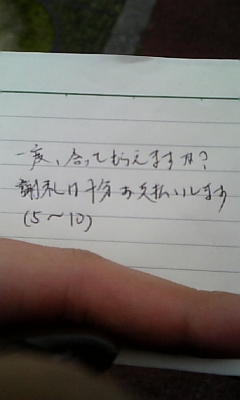 一度、合ってもらえますか?
謝礼は十分お支払いします
(5～10)